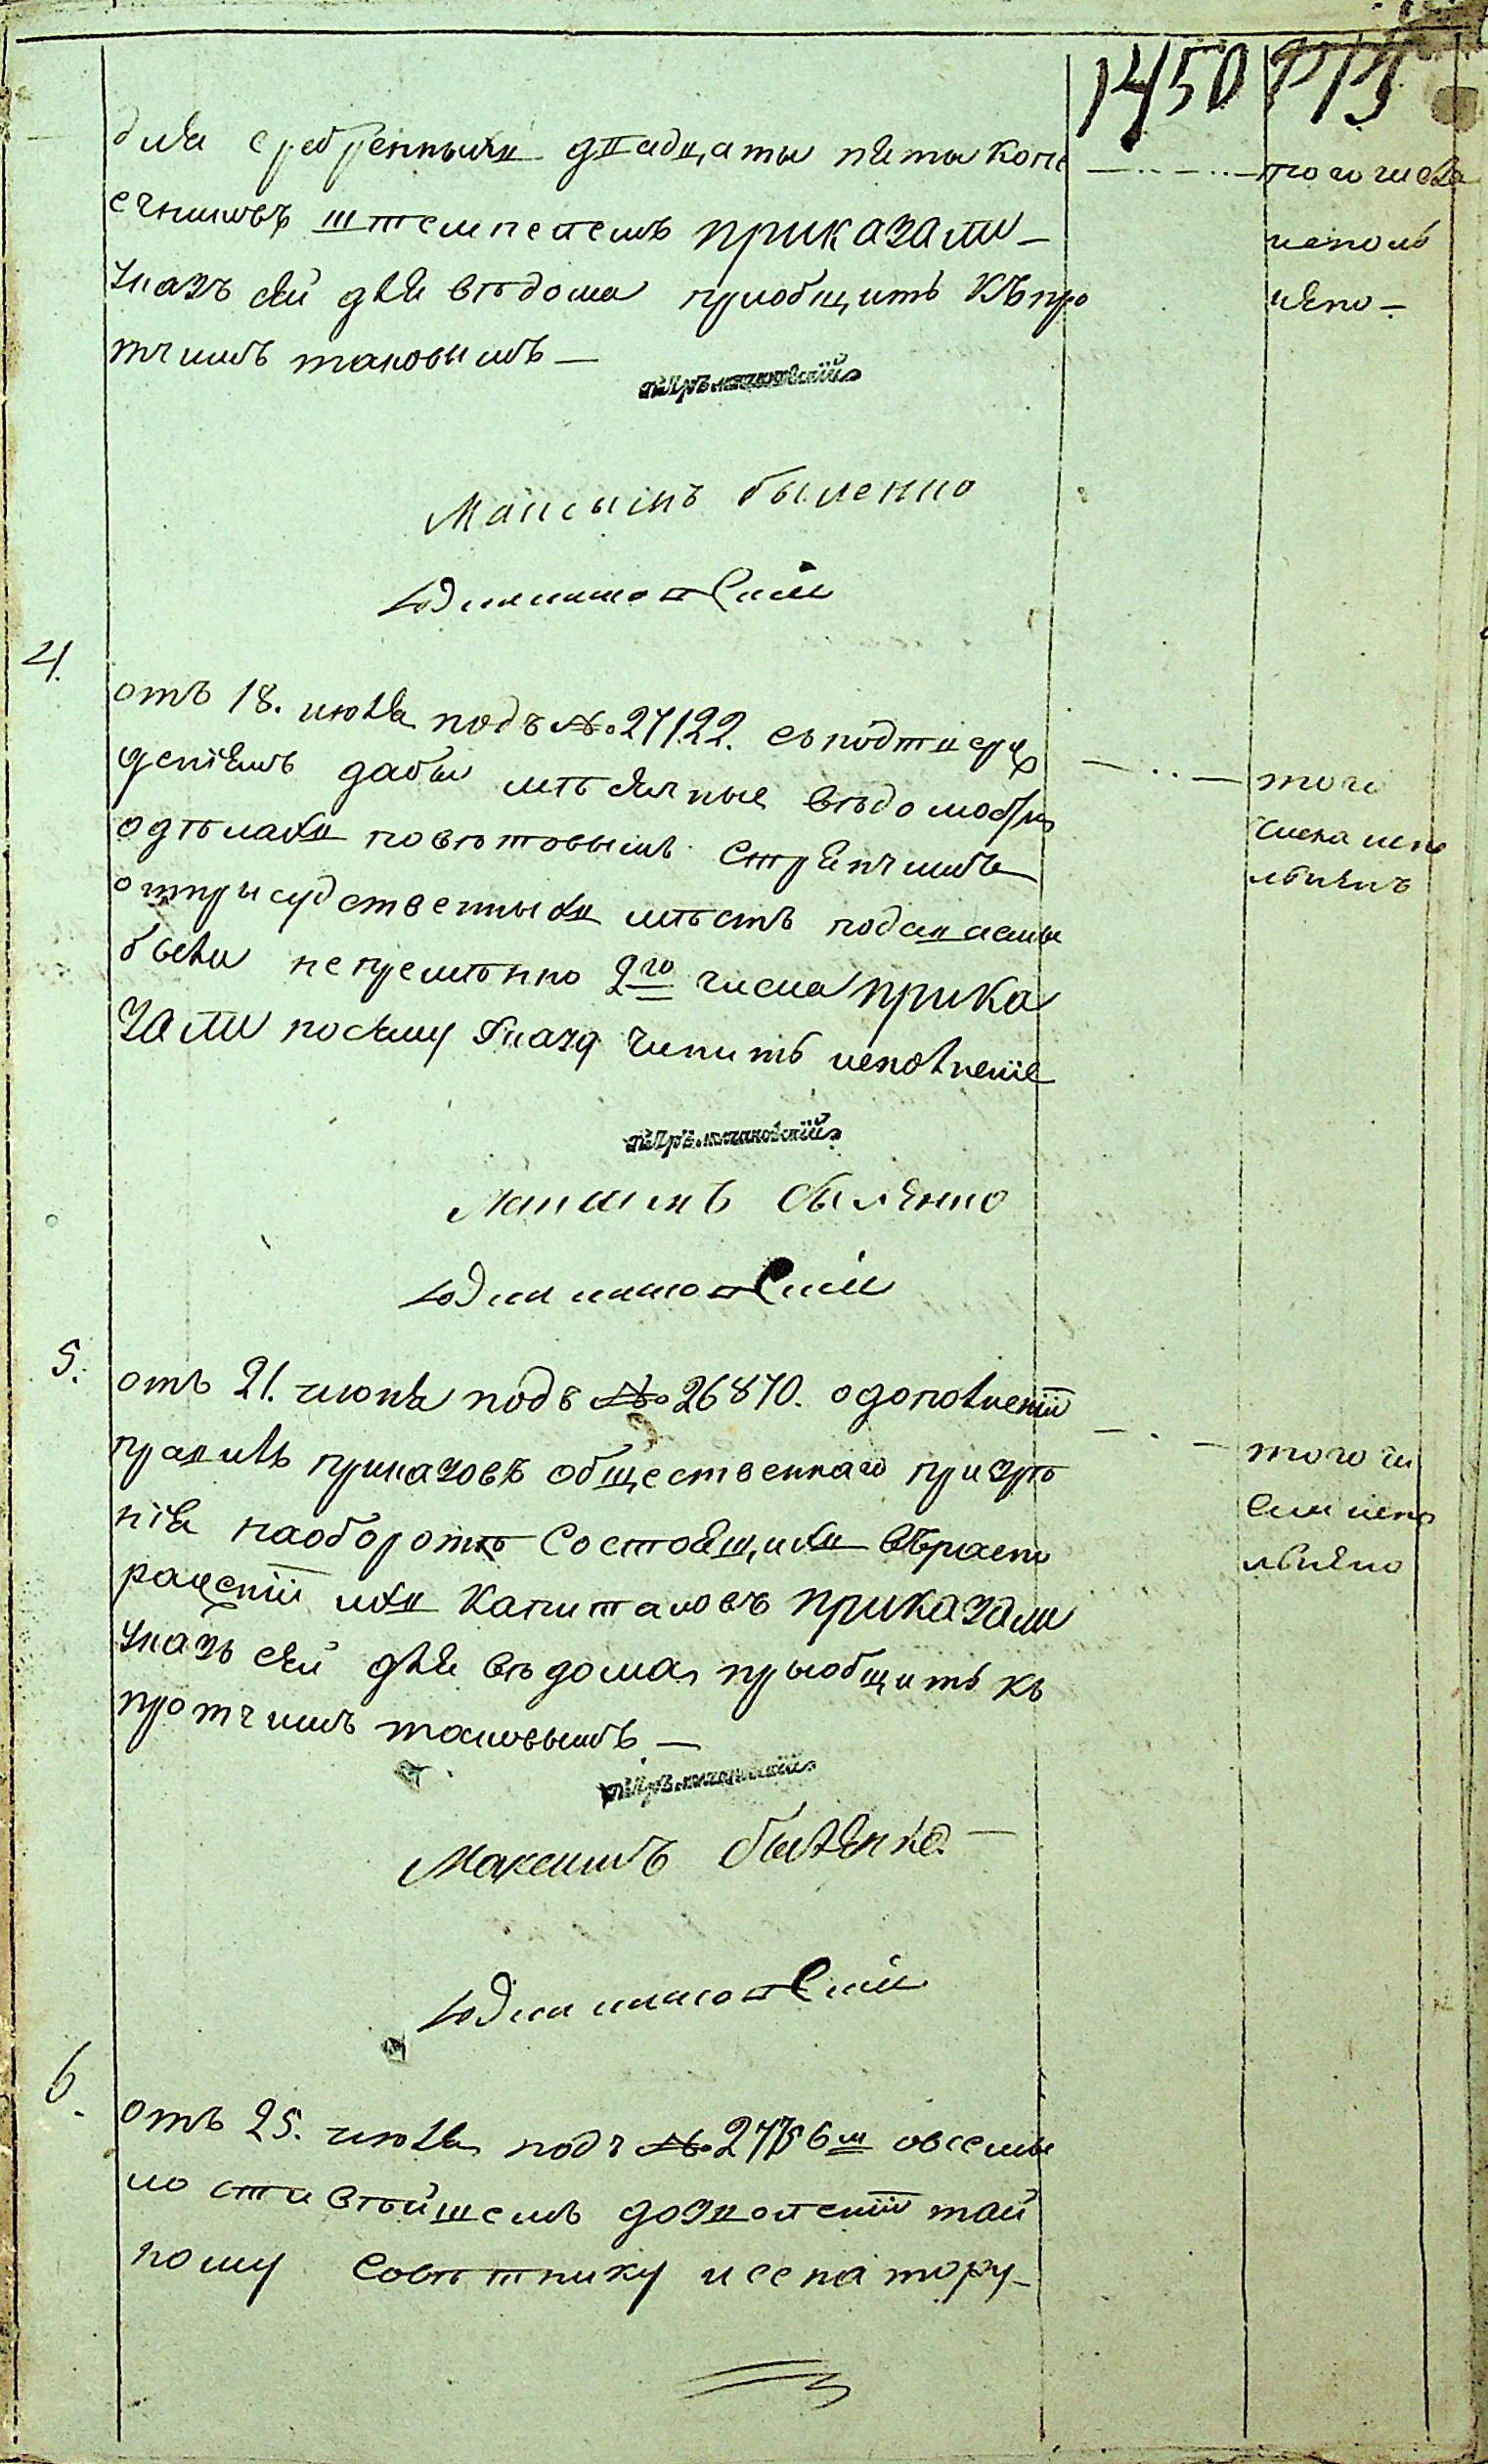 1450
для сребренныхъ двадцаты пяты копѣ
ечниковъ штемпелемъ приказали —
указъ сей для вѣдома приобщить къ про
тчимъ таковымъ —
того числа
исполь
нено —
Максымъ быленко
4.
отъ 18. июля подъ № 27122. съ подтверж
деніемъ дабы мѣсячные вѣдомости
о дѣлахъ повѣтовымъ стряпчимъ
от присудственныхъ мѣстъ подаваемы
были непремѣнно 2го числа прика
зали по сему Указу чинить исполненіе
того
числа испо
лнѣнъ
Максимъ быленко
5.
отъ 21. июня подъ № 26870. о дополненіи
правилъ приказовъ общественнаго призрѣ
нія на оборотъ состоящихъ въ распо
раженіи ихъ капиталовъ приказали
указъ сей для вѣдома, прыобщить къ
протчимъ таковымъ —
того чи
сла испо
лнено
Максимъ быленко —
6.
отъ 25. июля подъ № о всемы
лостивѣйшемъ дозволеніи тай
ному совѣтнику и сенатору —